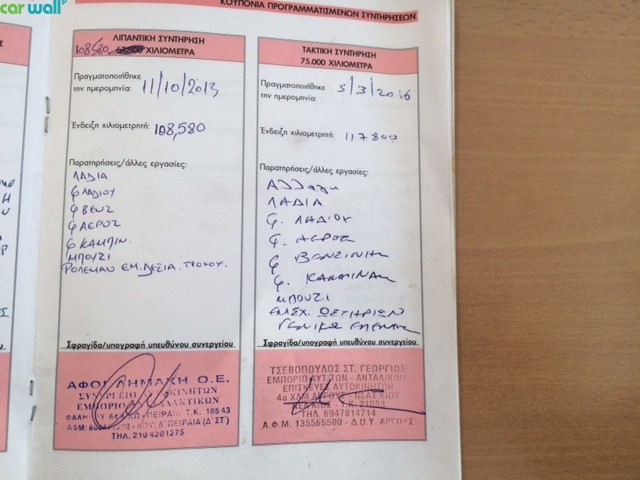 car wall
ΚΟΥΠΟΝΙΑ ΠΡΟΓΡΑΜΜΑΤΙΣΜΕΝΩΝ ΣΥΝΤΗΡΗΣΕΩΝ
ΛΙΠΑΝΤΙΚΗ ΣΥΝΤΗΡΗΣΗ
108580 ΧΙΛΙΟΜΕΤΡΑ
Πραγματοποιήθηκε
την ημερομηνία: 11/10/2013
Ένδειξη χιλιομετρητή: 108,580
Παρατηρήσεις/άλλες εργασίες:
ΛΑΔΙΑ
φ ΛΑΔΙΟΥ
φ ΒΕΝΖ
φ ΑΕΡΟΣ
φ ΚΑΜΠΙΝ.
ΜΠΟΥΖΙ
ΡΟΛΕΜΑΝ ΕΜ. ΔΕΞΙΑ. ΤΡΟΧΟΥ.
Σφραγίδα/υπογραφή υπευθύνου συνεργείου
ΑΦΟΙ ΛΗΜΑΚΗ Ο.Ε.
ΣΥΝΕΡΓΕΙΟ ΑΥΤΟΚΙΝΗΤΩΝ
ΕΜΠΟΡΙΟ ΑΝΤΑΛΛΑΚΤΙΚΩΝ
ΠΕΙΡΑΙΑ Τ.Κ. 185 43
ΑΦΜ: ΠΕΙΡΑΙΑ (Δ' ΣΤ')
ΤΗΛ. 210 4201275
ΤΑΚΤΙΚΗ ΣΥΝΤΗΡΗΣΗ
75.000 ΧΙΛΙΟΜΕΤΡΑ
Πραγματοποιήθηκε
την ημερομηνία: 5/3/2016
Ένδειξη χιλιομετρητή: 117800
Παρατηρήσεις/άλλες εργασίες:
Αλλαγη
ΛΑΔΙΑ
φ. ΛΑΔΙΟΥ
φ. ΑΕΡΟΣ
φ ΒΕΝΖΙΝΗ
φ. ΚΑΜΠΙΝΑΣ
ΜΠΟΥΖΙ
ΩΣΤΗΡΙΩΝ
ΓΕΝΙΚΟΣ
Σφραγίδα/υπογραφή υπευθύνου συνεργείου
ΤΣΕΒΟΠΟΥΛΟΣ ΣΤ. ΓΕΩΡΓΙΟΣ
ΕΜΠΟΡΙΟ ΑΥΤ/ΤΩΝ - ΑΝΤΑΛ/ΚΩΝ
ΕΠΙΣΚΕΥΕΣ ΑΥΤΟΚΙΝΗΤΩΝ
4ο ΧΛΜ ΑΡΓΟΥΣ - ΝΕΑΣ ΚΙΟΥ
ΝΕΑ ΚΙΟΣ Τ.Κ. 21053
ΤΗΛ. 6947914714
Α.Φ.Μ. 135565500 - Δ.Ο.Υ. ΑΡΓΟΥΣ